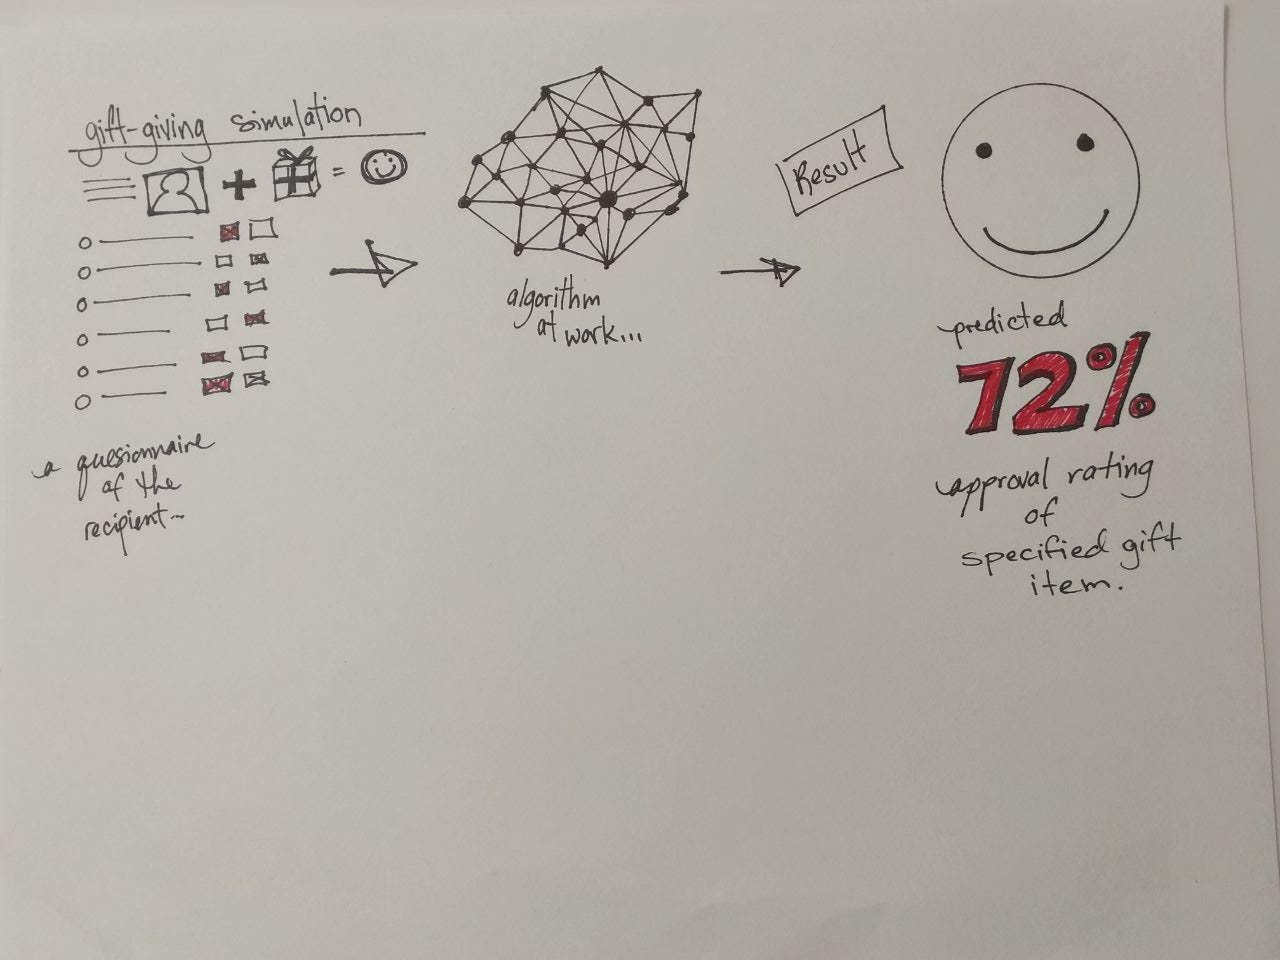 gift-giving simulation
a quesionnaire
of the
recipient~
algorithm
at work...
Result
predicted
72%
approval rating
of
specified gift
item.